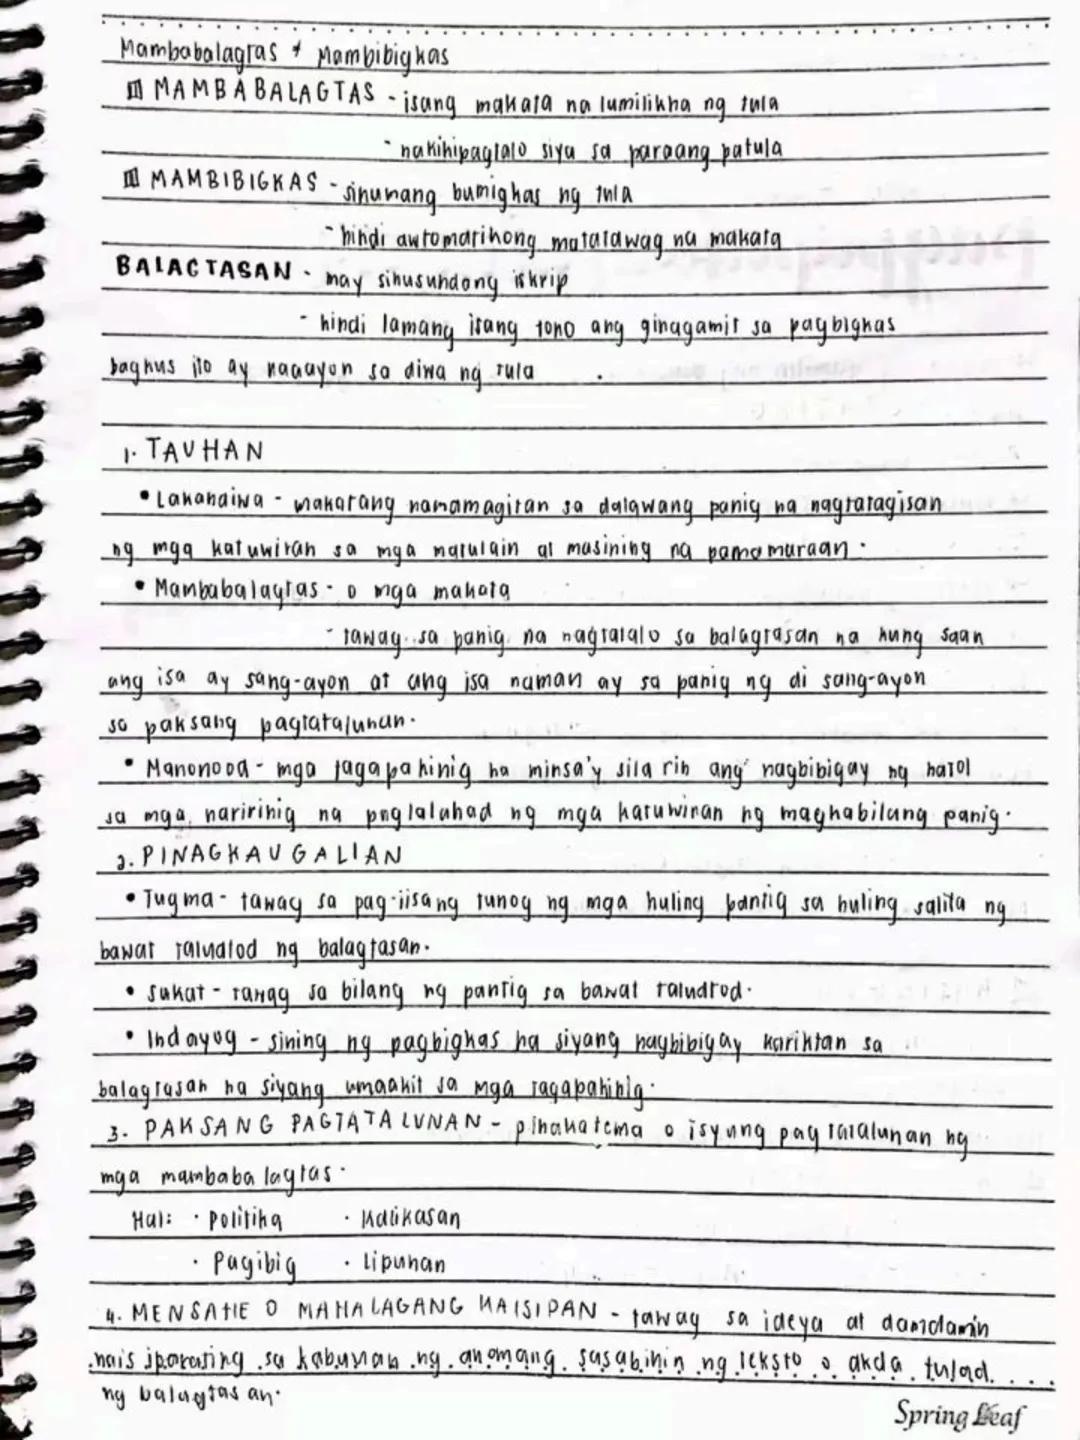 Mambabalagtas & Mambibigkas
MAMBABALAGTAS - isang makata na lumilikha ng tula
- nakikipagtalo siya sa paraang patula
MAMBIBIGKAS - sinumang bumigkas ng tula
- hindi awtomatikong matatawag na makata
BALAGTASAN - may sinusundang iskrip
- hindi lamang isang tono ang ginagamit sa pagbigkas
bagkus ito ay naaayon sa diwa ng tula
1. TAUHAN
• Lakandiwa - makatang namamagitan sa dalawang panig na nagtatagisan
ng mga katuwiran sa mga matulain at masining na pamamaraan.
• Mambabalagtas - o mga makata
- tawag sa panig na nagtatalo sa balagtasan na kung saan
ang isa ay sang-ayon at ang isa naman ay sa panig ng di sang-ayon
sa paksang pagtatalunan.
• Manonood - mga tagapakinig na minsa'y sila rin ang nagbibigay ng hatol
sa mga naririnig na paglalahad ng mga katuwiran ng magkabilang panig.
2. PINAGKAUGALIAN
• Tugma - tawag sa pag-iisang tunog ng mga huling pantig sa huling salita ng
bawat taludtod ng balagtasan.
• Sukat - tawag sa bilang ng pantig sa bawat taludtod.
• Indayog - sining ng pagbigkas na siyang nagbibigay kariktan sa
balagtasan na siyang umaakit sa mga tagapakinig.
3. PAKSANG PAGTATALUNAN - pinakatema o isyung pagtatalunan ng
mga mambabalagtas.
Hal: · Politika · Kalikasan
· Pagibig · Lipunan
4. MENSAHE O MAHALAGANG KAISIPAN - tawag sa ideya at damdamin
nais iparating sa kabuuan ng anomang sasabihin ng teksto o akda tulad
ng balagtasan.
Spring Leaf